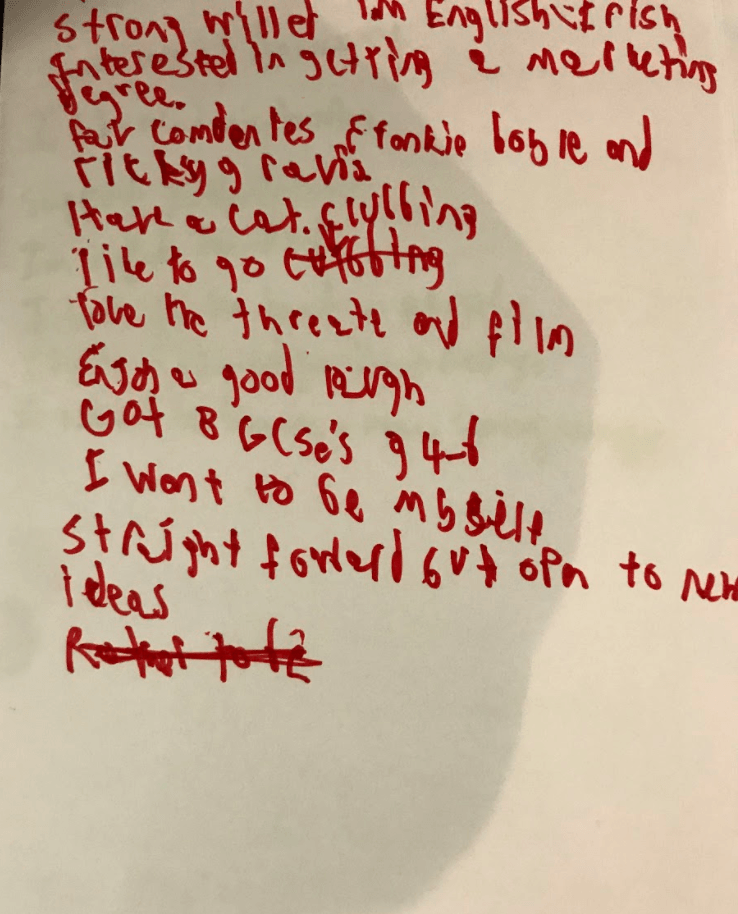 strong willed Im English irish
Interested in getting a marketing
degree.
fav comdentes frankie boyle and
ricky gravis
Have a cat. clubbing
I like to go
love the threate and film
Enjoy a good laugh
Got 8 GCSe's 94-6
I want to be myself
straight forward but opn to new
ideas